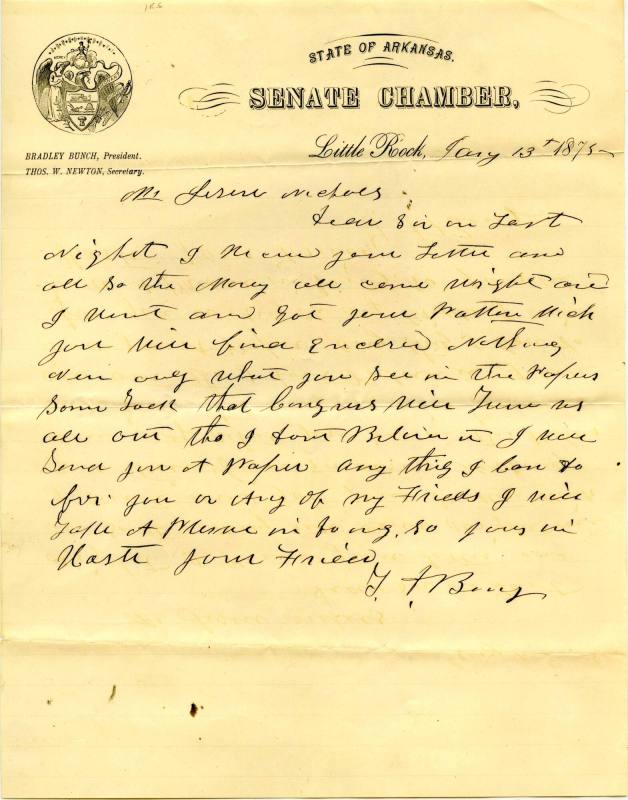 STATE OF ARKANSAS.
SENATE CHAMBER,
BRADLEY BUNCH, President.
THOS. W. NEWTON, Secretary.
Little Rock, Jany 13t 1875
Mr Nichols
Dear Sir on Last
Night I your Letter and
all so the Money all came Wright and
I Went and Got your
you Will find Encesed Nothing
New only What you See in the Papers
Some Talk that Congress Will Turn us
all out tho I dont Believe it I Will
Send you A Paper any thing I Can do
for you or Any of my Frieds I Will
Take A Plesure in doing, So yours in
Haste your Friend